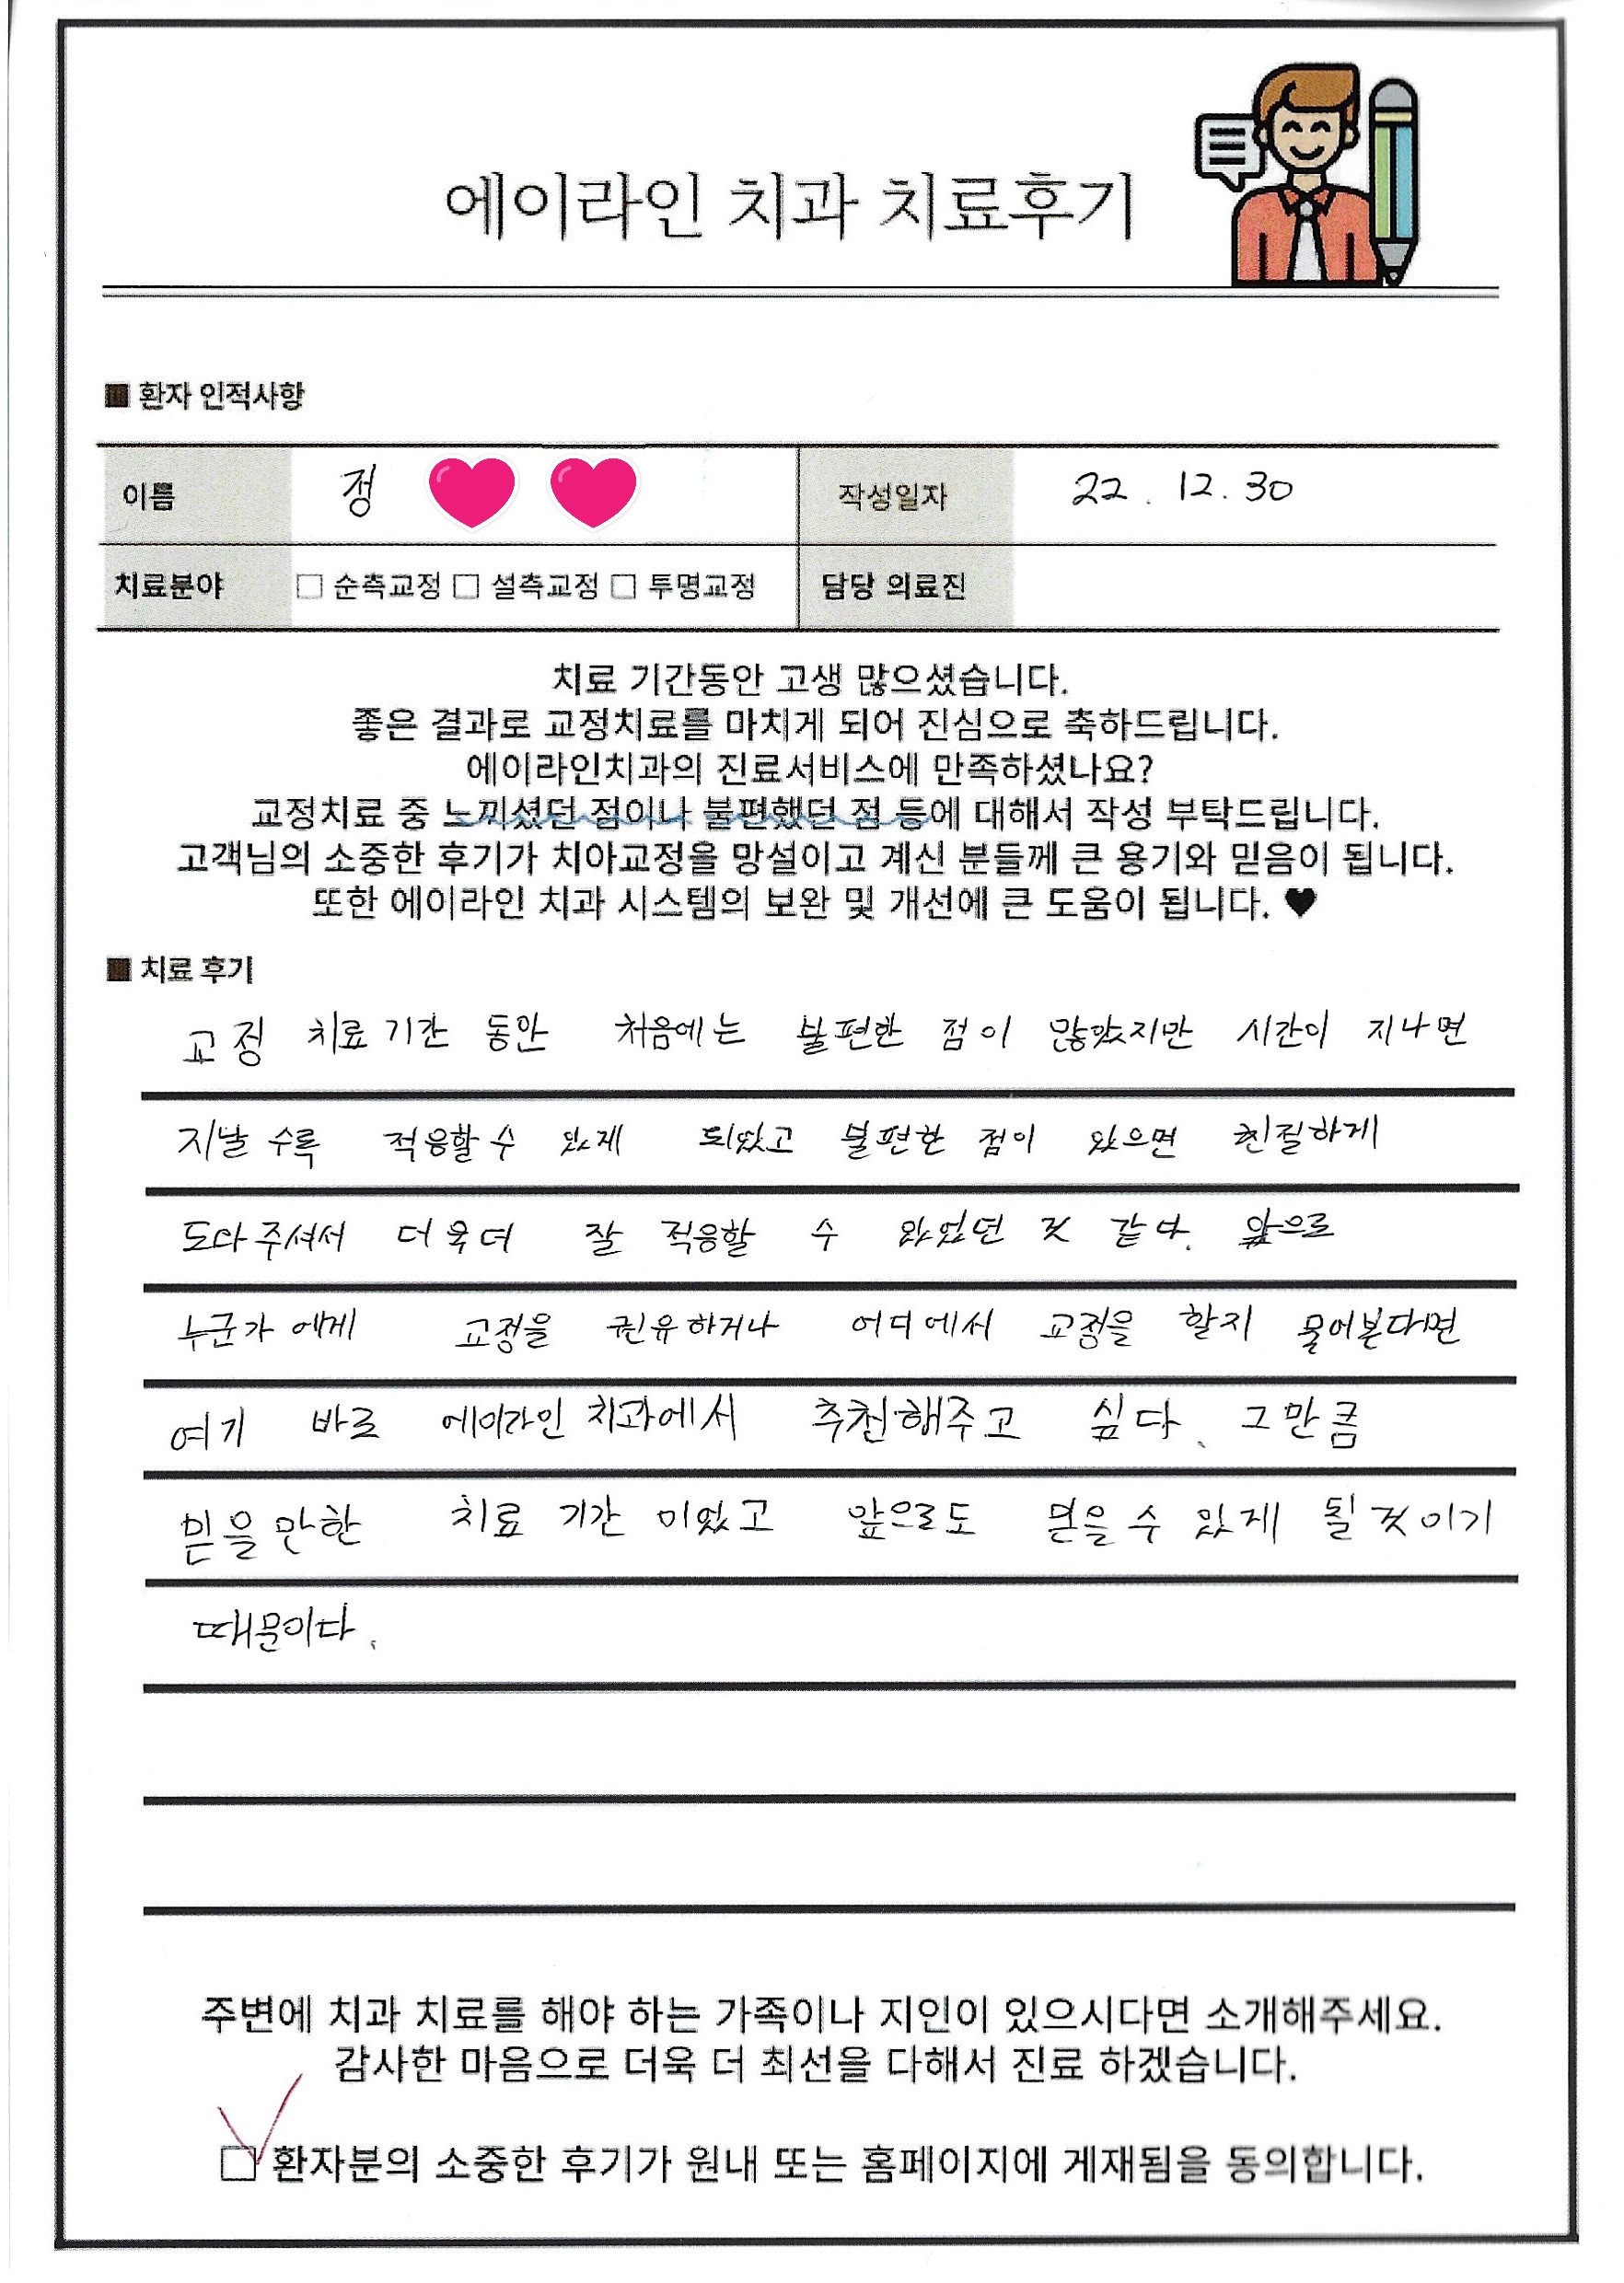 에이라인 치과 치료후기
■ 환자 인적사항
이름 정 작성일자 22. 12. 30
치료분야 □ 순측교정 □ 설측교정 □ 투명교정 담당 의료진
치료 기간동안 고생 많으셨습니다.
좋은 결과로 교정치료를 마치게 되어 진심으로 축하드립니다.
에이라인치과의 진료서비스에 만족하셨나요?
교정치료 중 느끼셨던 점이나 불편했던 점 등에 대해서 작성 부탁드립니다.
고객님의 소중한 후기가 치아교정을 망설이고 계신 분들께 큰 용기와 믿음이 됩니다.
또한 에이라인 치과 시스템의 보완 및 개선에 큰 도움이 됩니다. ♥
■ 치료 후기
교정 치료 기간 동안 처음에는 불편한 점이 많았지만 시간이 지나면
지날 수록 적응할 수 있게 되었고 불편한 점이 있으면 친절하게
도와 주셔서 더욱 더 잘 적응할 수 있었던 것 같다. 앞으로
누군가 에게 교정을 권유하거나 어디에서 교정을 할지 물어본다면
여기 바로 에이라인 치과에서 추천해주고 싶다. 그만큼
믿을만한 치료 기간 이었고 앞으로도 믿을 수 있게 될 것 이기
때문이다.
주변에 치과 치료를 해야 하는 가족이나 지인이 있으시다면 소개해주세요.
감사한 마음으로 더욱 더 최선을 다해서 진료 하겠습니다.
□ 환자분의 소중한 후기가 원내 또는 홈페이지에 게재됨을 동의합니다.